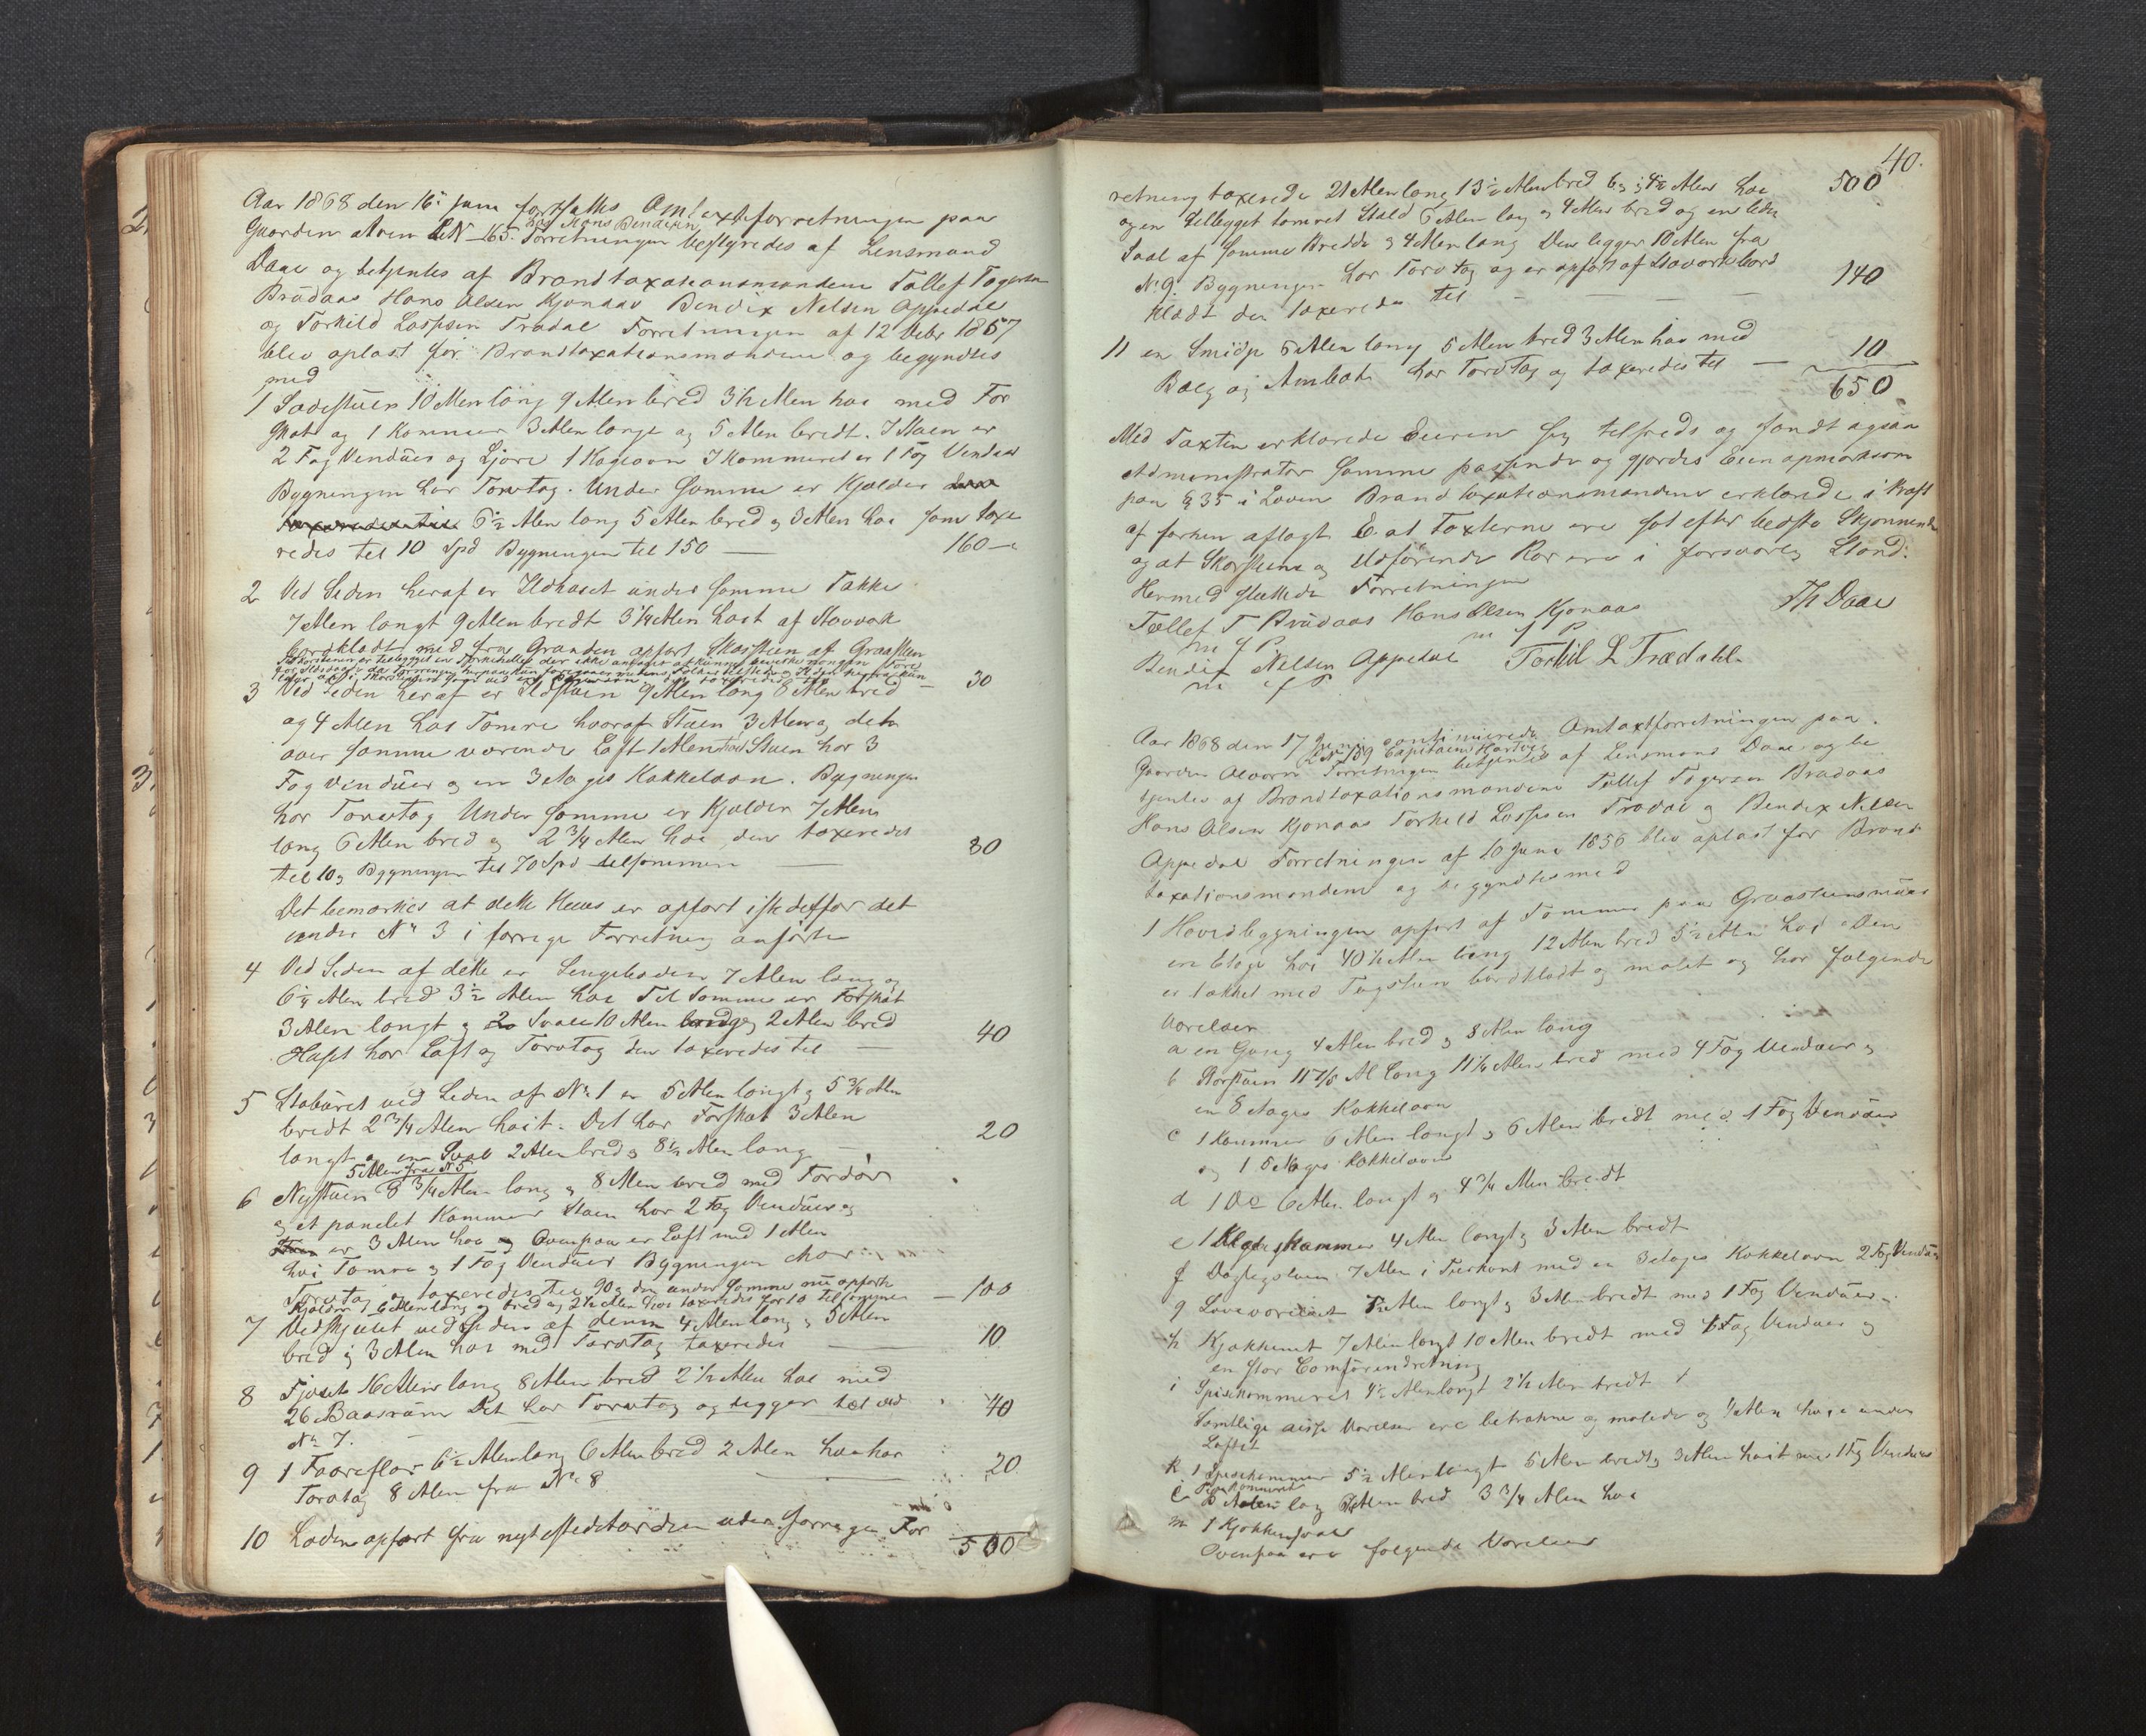 Aar 1868 den 16. Juni fortsattes Omtaxtforretningen paa
hos Mons Bendixen
Gaarden Alven LN 165. Forretningen bestyredes af Lensmand
Daae og betjentes af Brandtaxationsmændene Tollef Togersen
Brudaas Hans Olsen Kjonaas Bendix Nielsen Appedal
og Torkild Larssen Trædal Forretningen af 12 Debr 1857
blev oplæst for Brandtaxationsmændene og begyndtes
med
1 Ladestuen 10 Alen lang 9 Alen bred 3 1/2 Alen høi med For
skot og 1 Kammer 3 Alen langt og 5 Alen bredt. I Stuen er
2 Fag Vinduer og Ljore 1 Kogeovn I Kammeret er 1 Fag Vinduer
Bygningen har Torvtag. Under samme er Kjelder
6 1/2 Alen lang 5 Alen bred og 3 Alen høi som taxe
redes til 10 Spd Bygningen til 150 — 160
2 Ved Siden heraf er Ildhuset under samme Takke
7 Alen langt 9 Alen bredt 3 1/4 Alen høit af Stavværk
bordklædt med fra Grunden opført Skorsteen af Graasteen
30
3 Ved Siden heraf er Ildstuen 9 Alen lang 8 Alen bred
og 4 Alen høi Tømre hvoraf Stuen 3 Alen og det
over samme værende Loft 1 Alen Stuen har 3
Fag Vinduer og en 3 Etages Kakkelovn. Bygningen
har Torvtag Under samme er Kjelder 7 Alen
lang 6 Alen bred og 2 3/4 Alen høi, den taxeredes
til 10 og Bygningen til 70 Spd tilsammen — 80
Det bemærkes at dette Huus er opført istedetfor det
under No 3 i forrige Forretning anførte
4 Ved Siden af dette er Sengeboden 7 Alen lang og
6 1/4 Alen bred 3 1/2 Alen høi Til samme er Forskot
3 Alen langt og Sval 10 Alen lang og 2 Alen bred
Huset har Loft og Torvtag den taxeredes til — 40
5 Stabüret ved Siden af No 1 er 5 Alen langt og 5 3/4 Alen
bredt 2 3/4 Alen høit. Det har Forskot 3 Alen
langt og en Sval 2 Alen bred og 8 1/2 Alen lang — 20
5 Alen fra N 5
6 Nystuen 8 3/4 Alen lang og 8 Alen bred med Fordør
og et panelet Kammer Stuen har 2 Fag Vinduer og
er 3 Alen høi og Ovenpaa er Loft med 1 Alen
høi Tømre og 1 Fag Vinduer Bygningen har
Torvtag og taxeredes til 90 og den under samme nu opførte
Kjelder 6 Alen lang og bred og 2 1/2 Alen høi taxeredes for 10 tilsammen — 100
7 Vedskjulet ved Siden af denne 4 Alen lang og 5 Alen
bred og 3 Alen høi med Torvtag taxeredes — 10
8 Fjøset 16 Alen lang 8 Alen bred 2 1/2 Alen høi med
26 Baasrum Det har Torvtag og ligger tæt ved 40
No 7.
9 1 Faareflor 6 1/2 Alen lang 6 Alen bred 2 Alen høi har
Torvtag 8 Alen fra No 8 — 20
10 Laden opført fra nyt istedetfor den under forrige For
500
40.
retning taxerede 21 Alen lang 13 1/2 Alen bred 6 og 4 1/2 Alen høi 500
og en tilbygget tømret Stald 6 Alen lang og 4 Alen bred og en liden
Sval af samme Bredde og 4 Alen lang Den ligger 10 Alen fra
No 9 Bygningen har Torvtag og er opført af Stavværk bord
klædt den taxeredes til — 140
11 en Smidje 6 Alen lang 5 Alen bred 3 Alen høi med
Bælg og Ambolt har Torvtag og taxeredes til — 10
650
Med Taxten erklærede Eieren sig tilfreds og fandt ogsaa
Administrator samme passende og gjordes Eieren opmærksom
paa § 35 i Loven Brandtaxationsmændene erklærede i Kraft
af forhen aflagt Ed at Taxterne ere sat efter bedste Skjønnende
og at Skorstene og Ildførende Rør ere i forsvarlig Stand.
Hermed sluttedes Forretningen
Th Daae
Tollef T Brudaas Hans Olsen Kjonaas
m f P m f P
Bendix Nielsen Appedal Torkil L Trædahl.
m f P
Aar 1868 den 17 Juni continuerede Omtaxtforretningen paa
LN 159 Capitain Hartvig
Gaarden Alvorn Forretningen betjentes af Lensmand Daae og be
tjentes af Brandtaxationsmændene Tollef Togersen Brudaas
Hans Olsen Kjonaas Torkild Larssen Trædal og Bendix Nielsen
Appedal Forretningen af 10 Juni 1856 blev oplæst for Brand
taxationsmændene og begyndtes med
1 Hovedbygningen opført af Tømmer paa Graasteensmuur
en Etage høi 40 1/2 Alen lang 12 Alen bred 5 1/2 Alen høi Den
er takket med Tagsteen bordklædt og malet og har følgende
Værelser
a en Gang 4 Alen bred og 8 Alen lang
b Storstuen 11 7/8 Al lang 11 1/4 Alen bred med 4 Fag Vinduer og
en 3 Etages Kakkelovn
c 1 Kammer 6 Alen langt og 6 Alen bredt med 1 Fag Vinduer
og 1 5 Etages Kakkelovn
d 1 Do 6 Alen langt og 4 3/4 Alen bredt
e 1 Klædeskammer 4 Alen langt og 3 Alen bredt
f Dagligstuen 7 Alen i Fiirkant med en 3 Etages Kakkelovn 2 Fag Vinduer
g Soveværelset 7 Alen langt og 3 Alen bredt med 1 Fag Vinduer
h Kjøkkenet 7 Alen langt 10 Alen bredt med Fag Vinduer og
en stor Comførindretning
i Spisekammeret 4 1/2 Alen langt 2 1/2 Alen bredt
Samtlige disse Værelser ere betrukne og malede og 4 Alen høie under
Loftet
k 1 Spisekammer 5 1/2 Alen langt 5 Alen bredt og 3 Alen høit med 1 Fag Vinduer
l Alen lang Alen bred 3 3/4 Alen høi
m 1 Kjøkkensval
Ovenpaa ere følgende Værelser